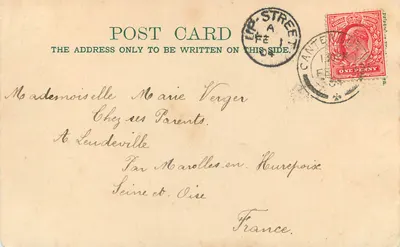 POST CARD
THE ADDRESS ONLY TO BE WRITTEN ON THIS SIDE.
UP-STREET
A
FE 1
04
CANTE
FE
ONE PENNY
Mademoiselle Marie Verger
Chez ses Parents.
A Leudeville
Par Marolles-en Hurepoix
Seine et Oise
France.